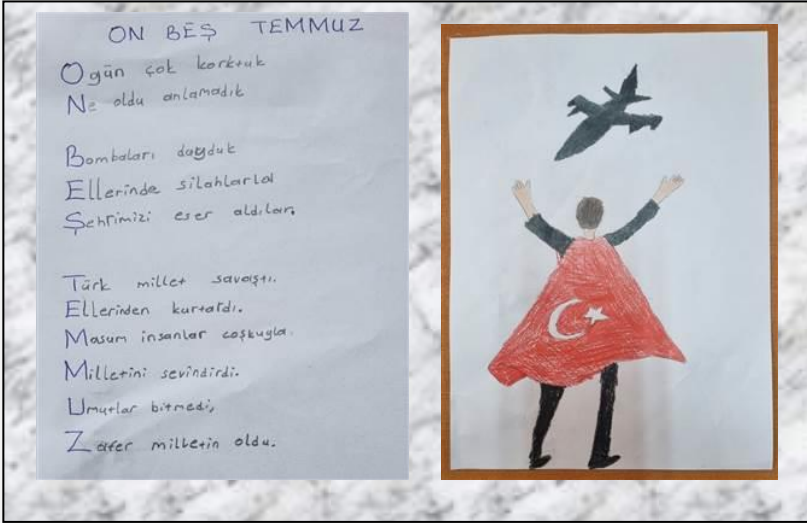 ON BEŞ TEMMUZ
O gün çok korktuk
Ne oldu anlamadık
Bombaları duyduk
Ellerinde silahlarla
Şehrimizi eser aldılar.
Türk millet savaştı.
Ellerinden kurtardı.
Masum insanlar coşkuyla.
Milletini sevindirdi.
Umutlar bitmedi,
Zafer milletin oldu.